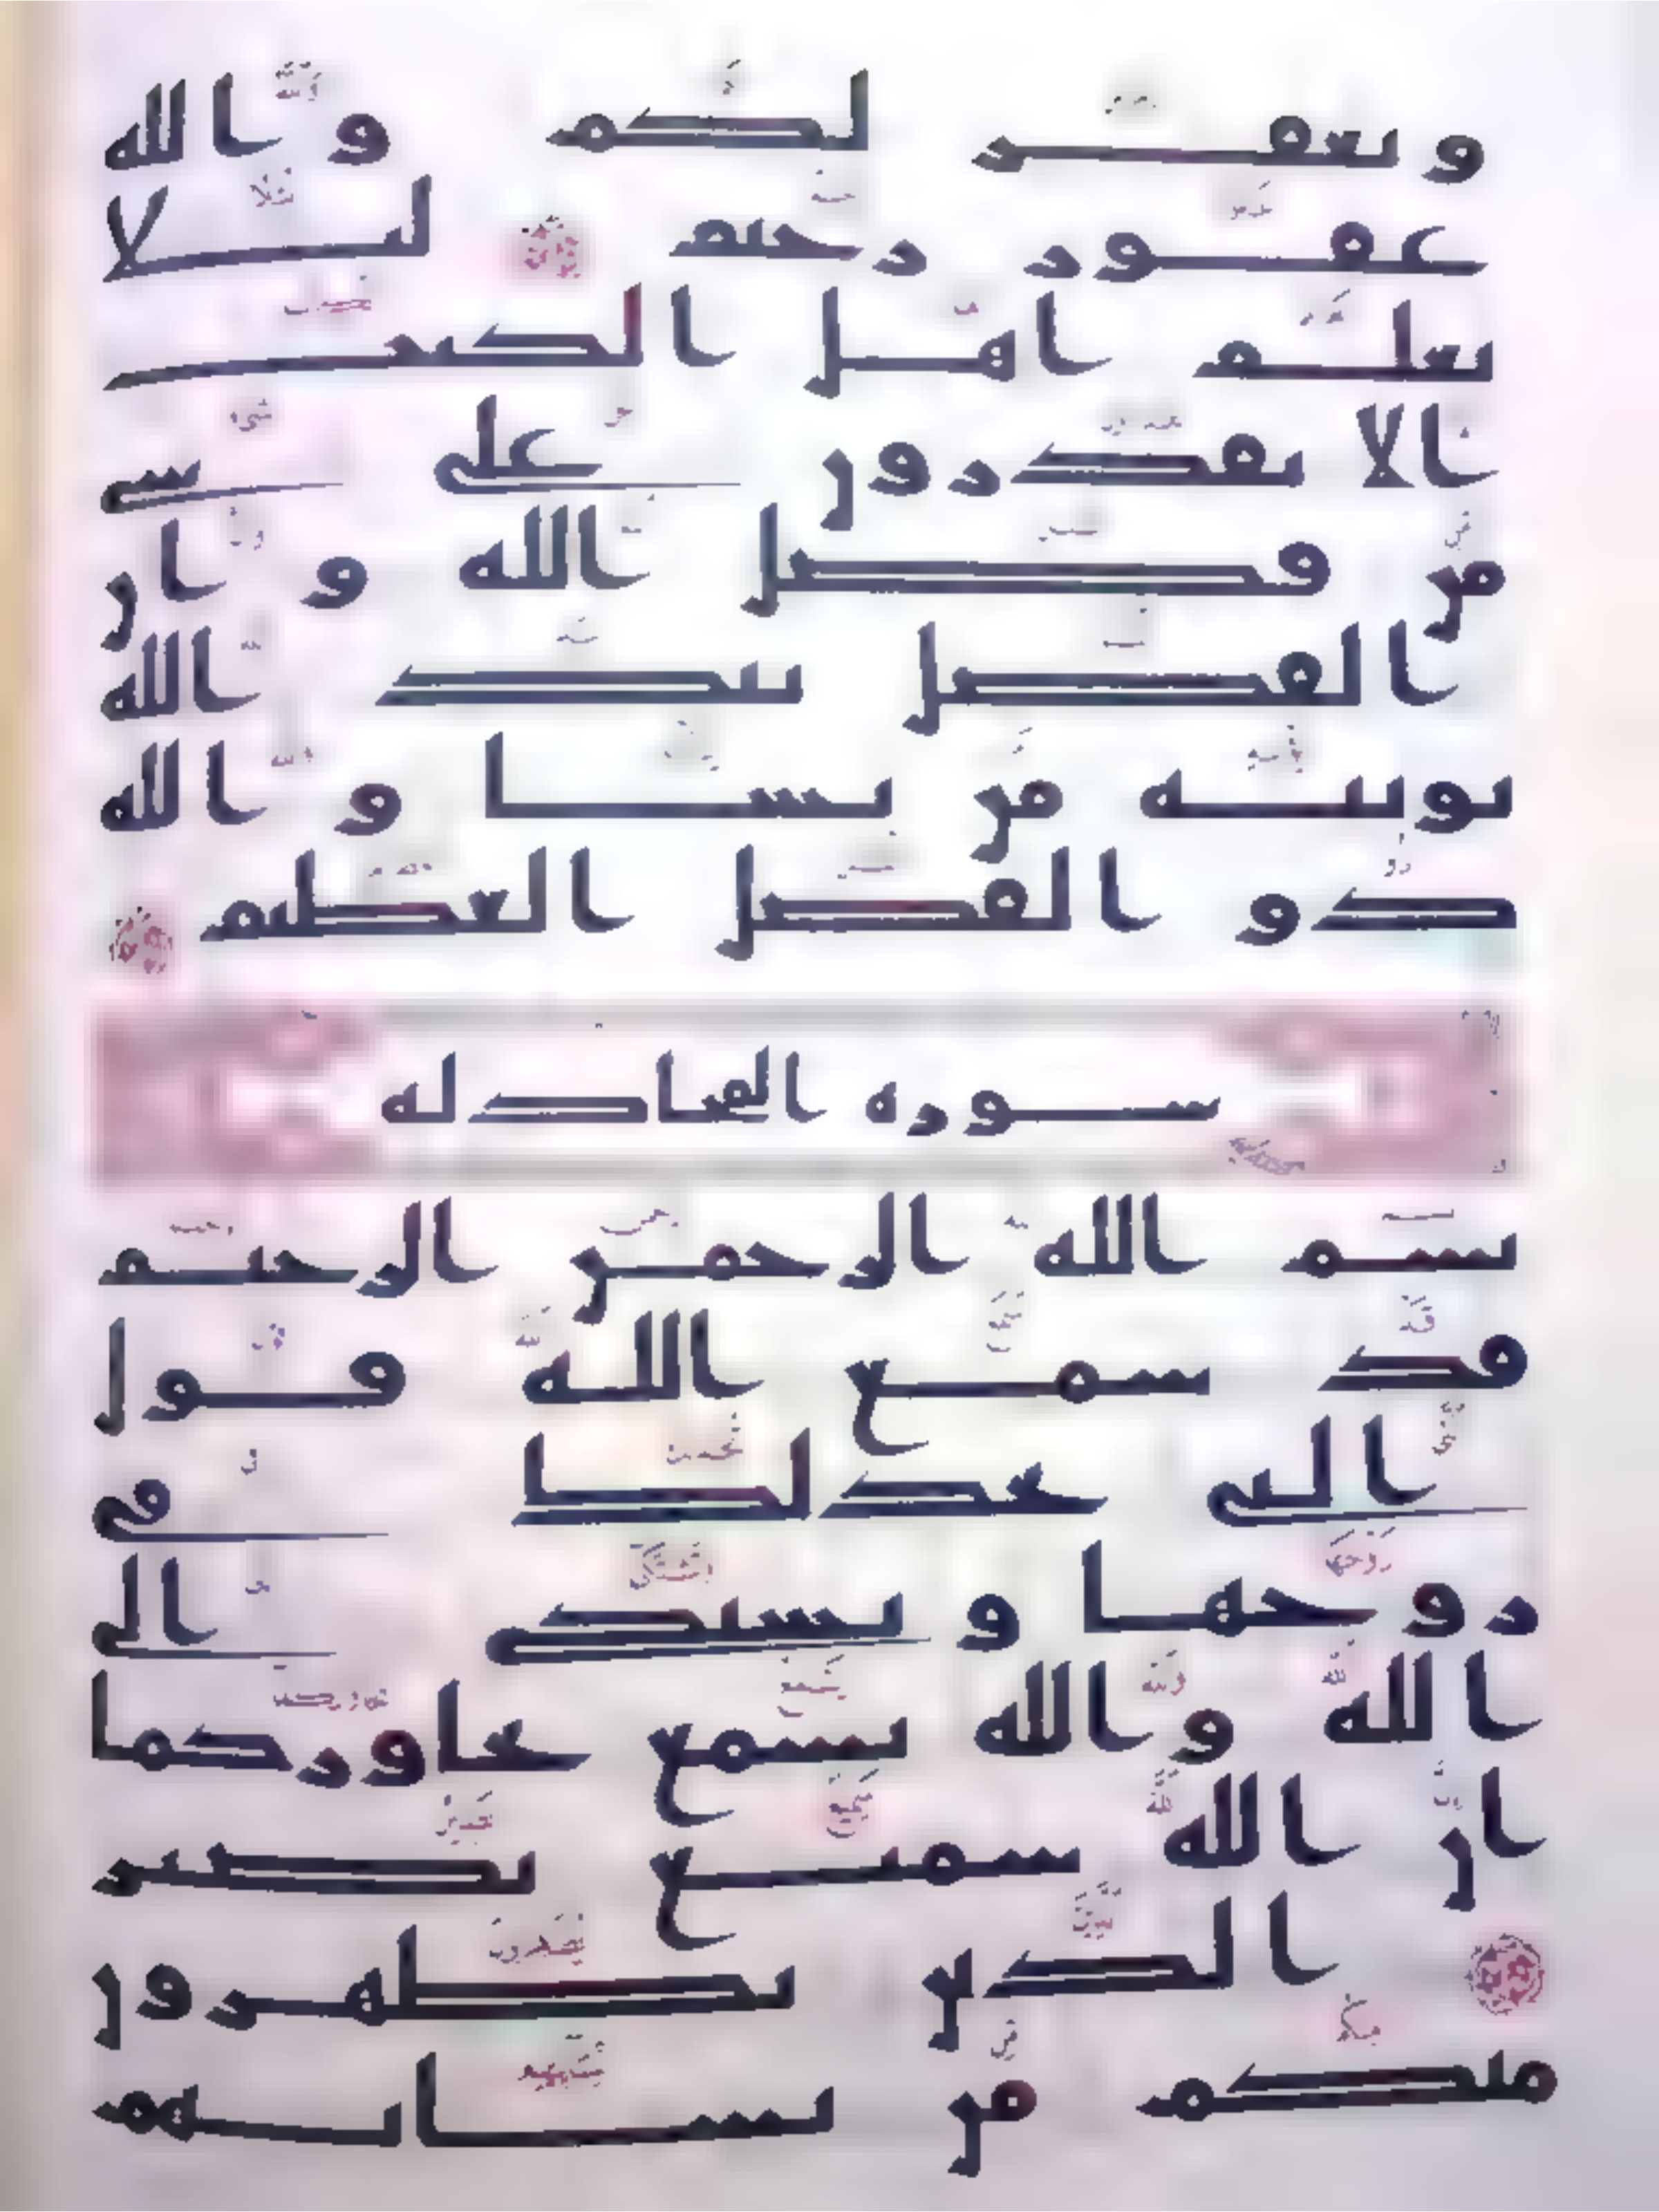 ويغفر لكم والله
غفور رحيم لئلا
يعلم اهل الكتب
الا يقدرون على شي
من فضل الله وان
الفضل بيد الله
يوتيه من يشا والله
ذو الفضل العظيم
سورة المجادلة
بسم الله الرحمن الرحيم
قد سمع الله قول
التي تجدلك في
زوجها وتشتكي الى
الله والله يسمع تحاوركما
ان الله سميع بصير
الذين يظهرون
منكم من نسائهم